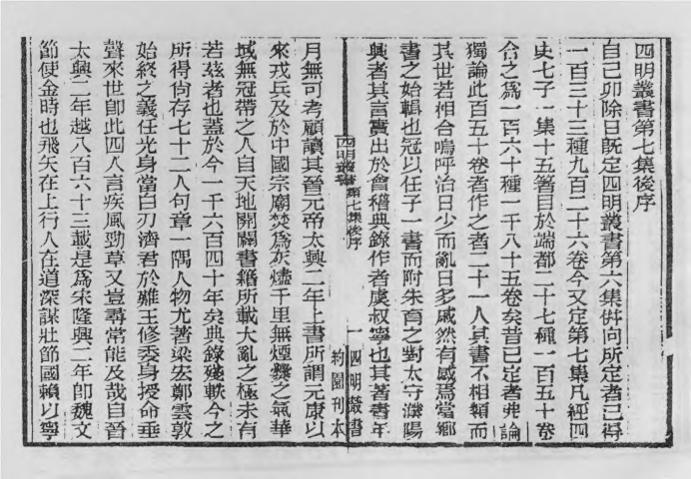 四明叢書第七集後序
自己卯除日旣定四明叢書第六集倂向所定者已得
一百三十三種九百二十六卷今又定第七集凡經四
史七子一集十五著目於端都二十七種一百五十卷
合之爲一百六十種一千八十五卷矣昔已定者弗論
獨論此百五十卷者作之者二十一人其書不相類而
其世若相合嗚呼治日少而亂日多戚然有感焉當鄉
書之始輯也冠以任子一書而附朱育之對太守濮陽
興者其言實出於會稽典錄作者虞叔寧也其著書年
四明叢書 第七集後序
一 四明叢書
約園刊本
月無可考顧讀其晉元帝太興二年上書所謂元康以
來戎兵及於中國宗廟焚爲灰燼千里無煙爨之氣華
域無冠帶之人自天地開闢書籍所載大亂之極未有
若茲者也蓋於今一千六百四十年矣典錄殘軼今之
所得尙存七十二人句章一隅人物尤著梁宏鄭雲敦
始終之義任光身當白刃濟君於難王修委身授命垂
聲來世卽此四人言疾風勁草又豈尋常能及哉自晉
太興二年越八百六十三載是爲宋隆興二年卽魏文
節使金時也飛矢在上行人在道深謀壯節國賴以寧